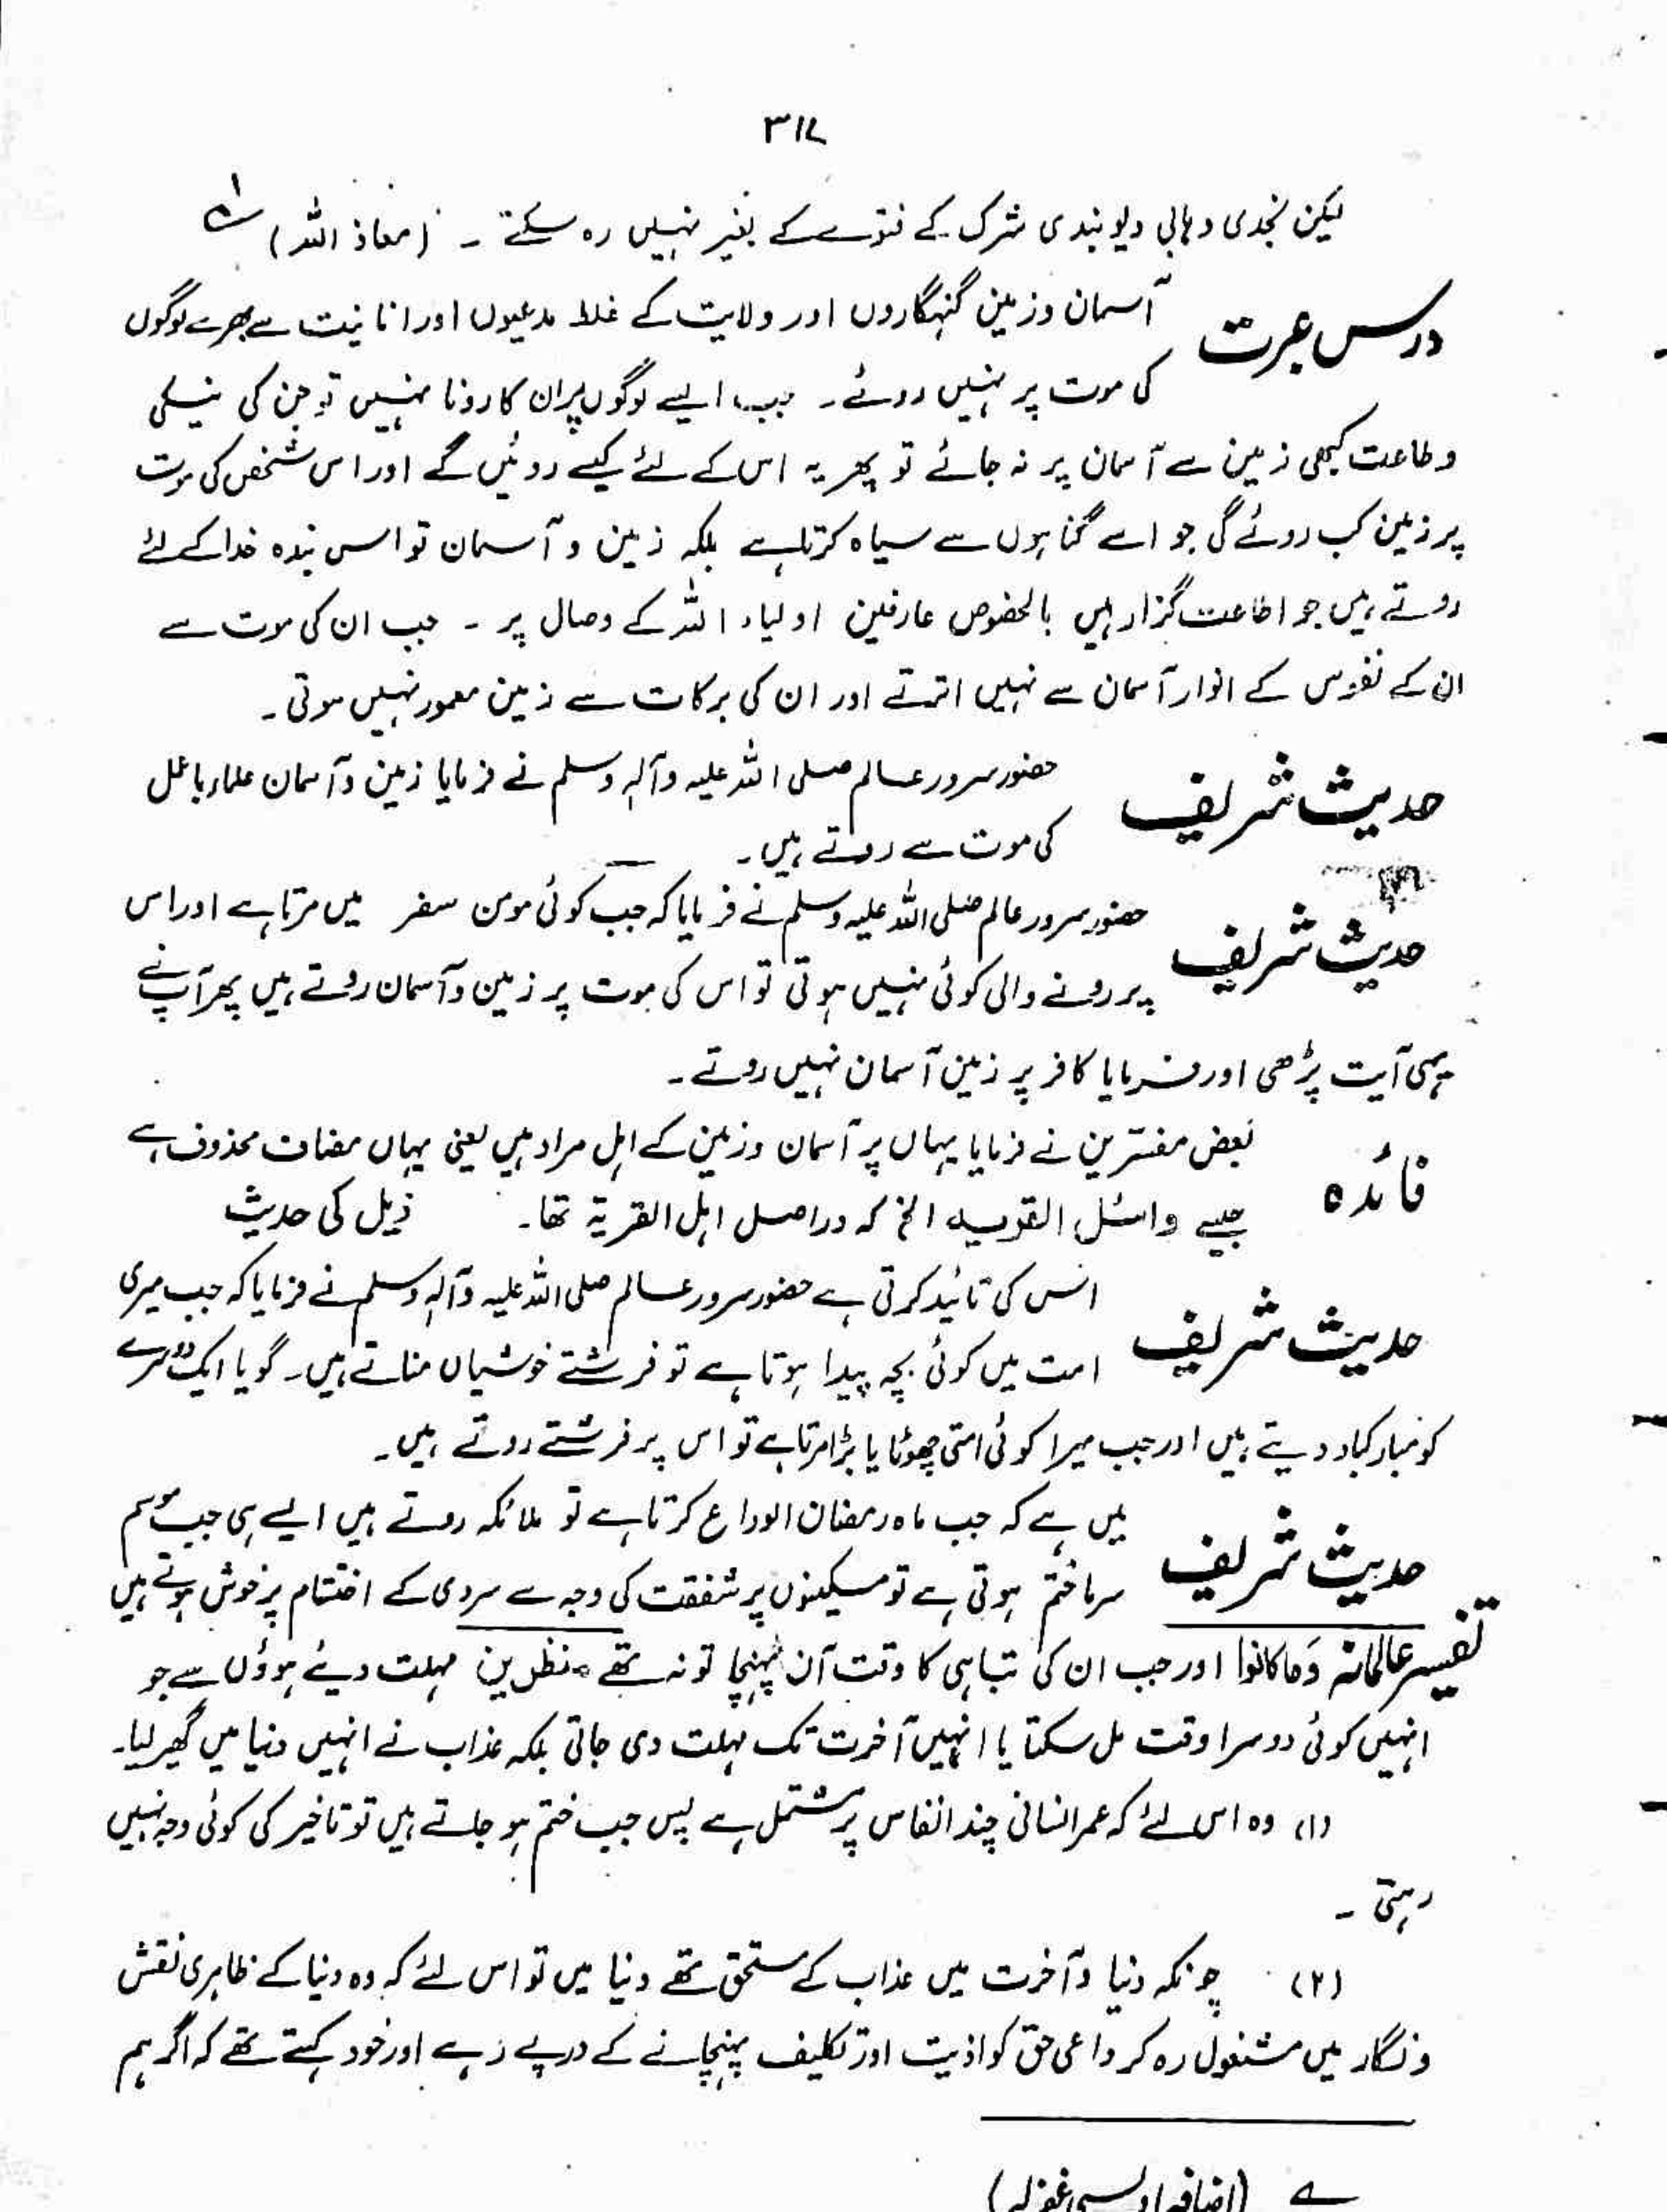 ۳۱۷
لیکن نجدی وہابی دیوبندی شرک کے فتوے کے بغیر نہیں رہ سکتے ۔ (معاذ اللہ) ۱ے
درس عبرت آسمان وزمین گنہگاروں اور ولایت کے غلط مدعیوں اور انانیت سے بھرے لوگوں
کی موت پر نہیں روئے ۔ جب ایسے لوگوں پر ان کا رونا نہیں تو جن کی نیکی
وطاعت کبھی زمین سے آسمان پر نہ جائے تو پھر یہ اس کے لئے کیسے روئیں گے اور اس شخص کی موت
پر زمین کب روئے گی جو اسے گناہوں سے سیاہ کرتا ہے بلکہ زمین و آسمان تو اس بندہ خدا کے لئے
روتے ہیں جو اطاعت گزار ہیں بالخصوص عارفین اولیاء اللہ کے وصال پر ۔ جب ان کی موت سے
ان کے نفوس کے انوار آسمان سے نہیں اترتے اور ان کی برکات سے زمین معمور نہیں ہوتی ۔
حدیث شریف حضور سرور عالم صلی اللہ علیہ وآلہ وسلم نے فرمایا زمین وآسمان علماء باعمل
کی موت سے روتے ہیں ۔
حدیث شریف حضور سرور عالم صلی اللہ علیہ وسلم نے فرمایا کہ جب کوئی مومن سفر میں مرتا ہے اور اس
پر رونے والی کوئی نہیں ہوتی تو اس کی موت پر زمین وآسمان روتے ہیں پھر آپ نے
یہی آیت پڑھی اور فرمایا کافر پر زمین آسمان نہیں روتے ۔
فائدہ بعض مفسّرین نے فرمایا یہاں پر آسمان وزمین کے اہل مراد ہیں یعنی یہاں مضاف محذوف ہے
جیسے واسئل القریہ الخ کہ دراصل اہل القریۃ تھا ۔ ذیل کی حدیث
حدیث شریف اس کی تائید کرتی ہے حضور سرور عالم صلی اللہ علیہ وآلہ وسلم نے فرمایا کہ جب میری
امت میں کوئی بچہ پیدا ہوتا ہے تو فرشتے خوشیاں مناتے ہیں ۔ گویا ایک دوسرے
کو مبارکباد دیتے ہیں اور جب میرا کوئی امتی چھوٹا یا بڑا مرتا ہے تو اس پر فرشتے روتے ہیں ۔
حدیث شریف میں ہے کہ جب ماہ رمضان الوداع کرتا ہے تو ملائکہ روتے ہیں ایسے ہی جب موسم
سرما ختم ہوتی ہے تو مسکینوں پر شفقت کی وجہ سے سردی کے اختتام پر خوش ہوتے ہیں
تفسیر عالمانہ وَما کانوا اور جب ان کی تباہی کا وقت آن پہنچا تو نہ تھے منظرین مہلت دیئے ہوؤں سے جو
انہیں کوئی دوسرا وقت مل سکتا یا انہیں آخرت تک مہلت دی جاتی بلکہ عذاب نے انہیں دنیا میں گھیر لیا ۔
(۱) وہ اس لئے کہ عمر انسانی چند انفاس پر مشتمل ہے پس جب ختم ہو جاتے ہیں تو تاخیر کی کوئی وجہ نہیں
رہتی ۔
(۲) چونکہ دنیا وآخرت میں عذاب کے مستحق تھے دنیا میں تو اس لئے کہ وہ دنیا کے ظاہری نقش
ونگار میں مشغول رہ کر داعی حق کو اذیت اور تکلیف پہنچانے کے درپے رہے اور خود کہتے تھے کہ اگر ہم
ے (اضافہ اویسی غفرلہ)